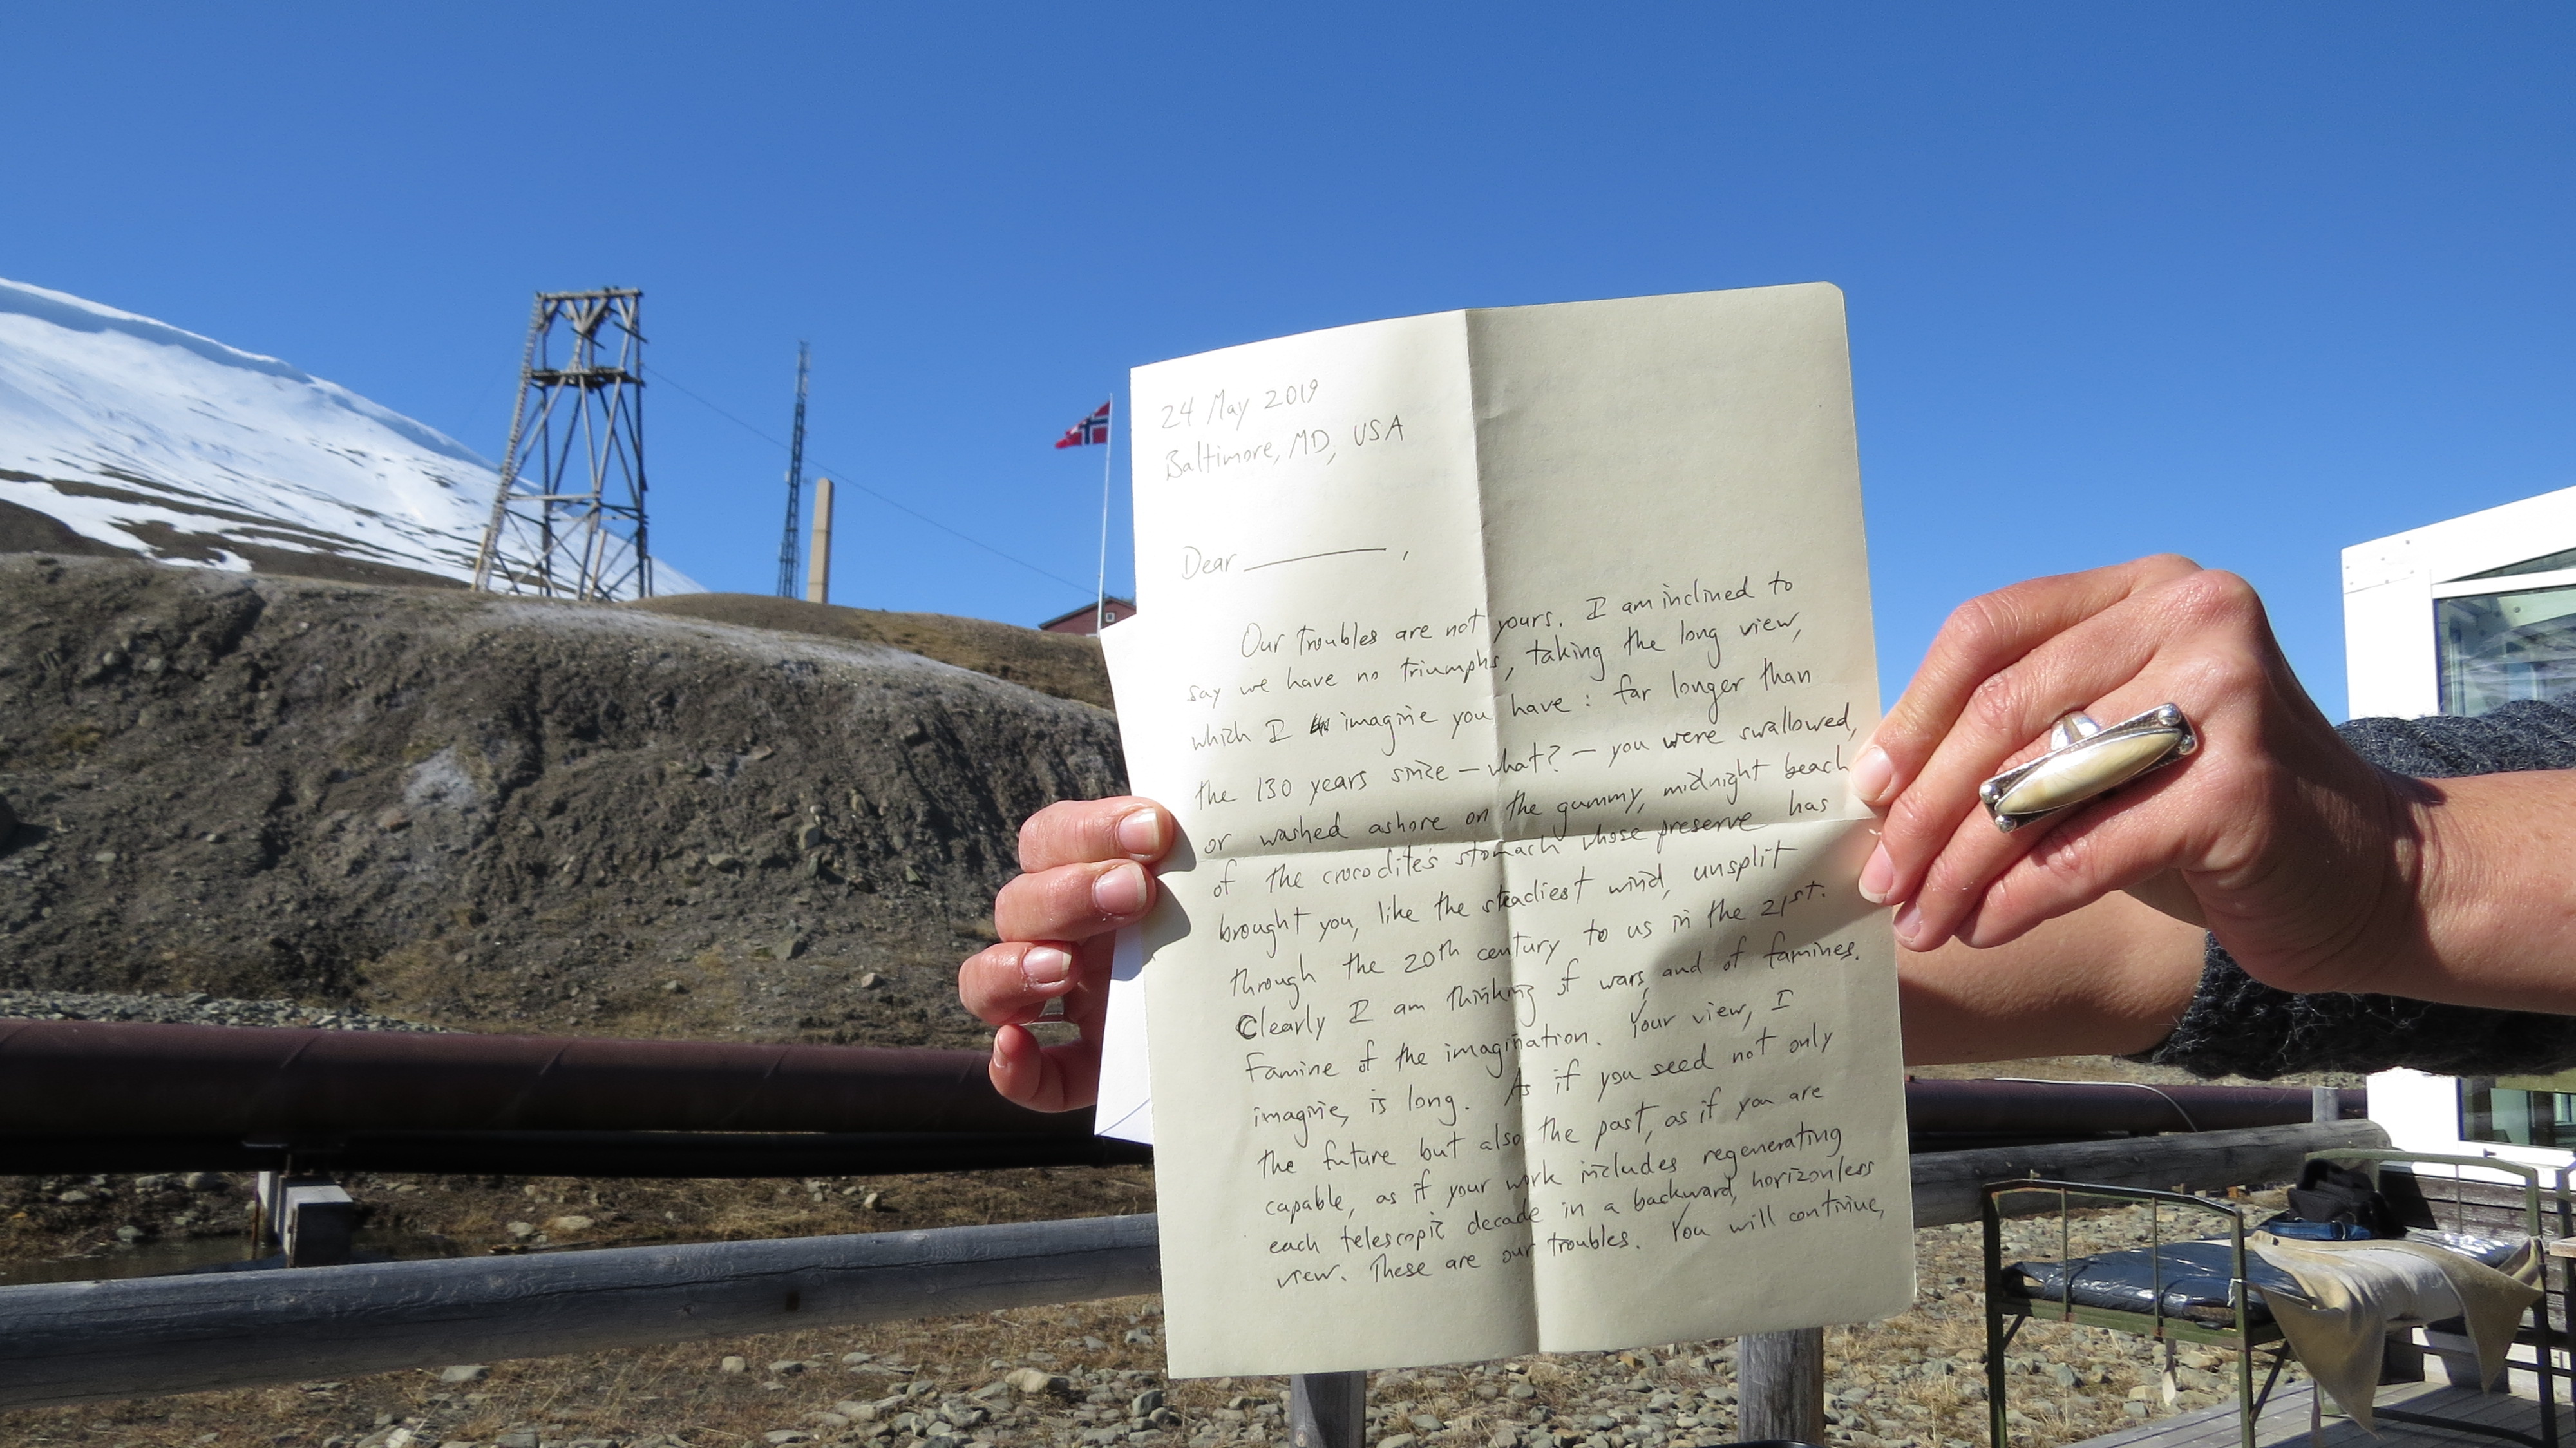 24 May 2019
Baltimore, MD, USA
Dear ________,
Our troubles are not yours. I am inclined to
say we have no triumphs, taking the long view,
which I imagine you have: far longer than
the 130 years since — what? — you were swallowed,
or washed ashore on the gummy, midnight beach
of the crocodile's stomach whose preserve has
brought you, like the steadiest wind, unsplit
through the 20th century to us in the 21st.
Clearly I am thinking of wars, and of famines.
Famine of the imagination. Your view, I
imagine, is long. As if you seed not only
the future but also the past, as if you are
capable, as if your work includes regenerating
each telescopic decade in a backward, horizonless
view. These are our troubles. You will continue,